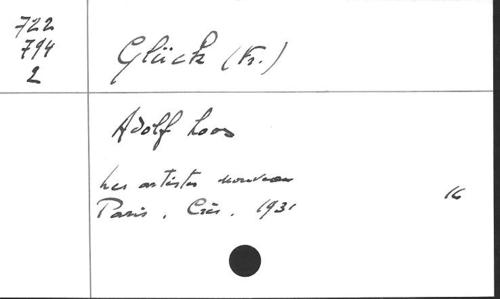 722
794
2
Glück (Fr.)
Adolf Loos
Les artistes nouveaux
Paris, Crès, 1931
16